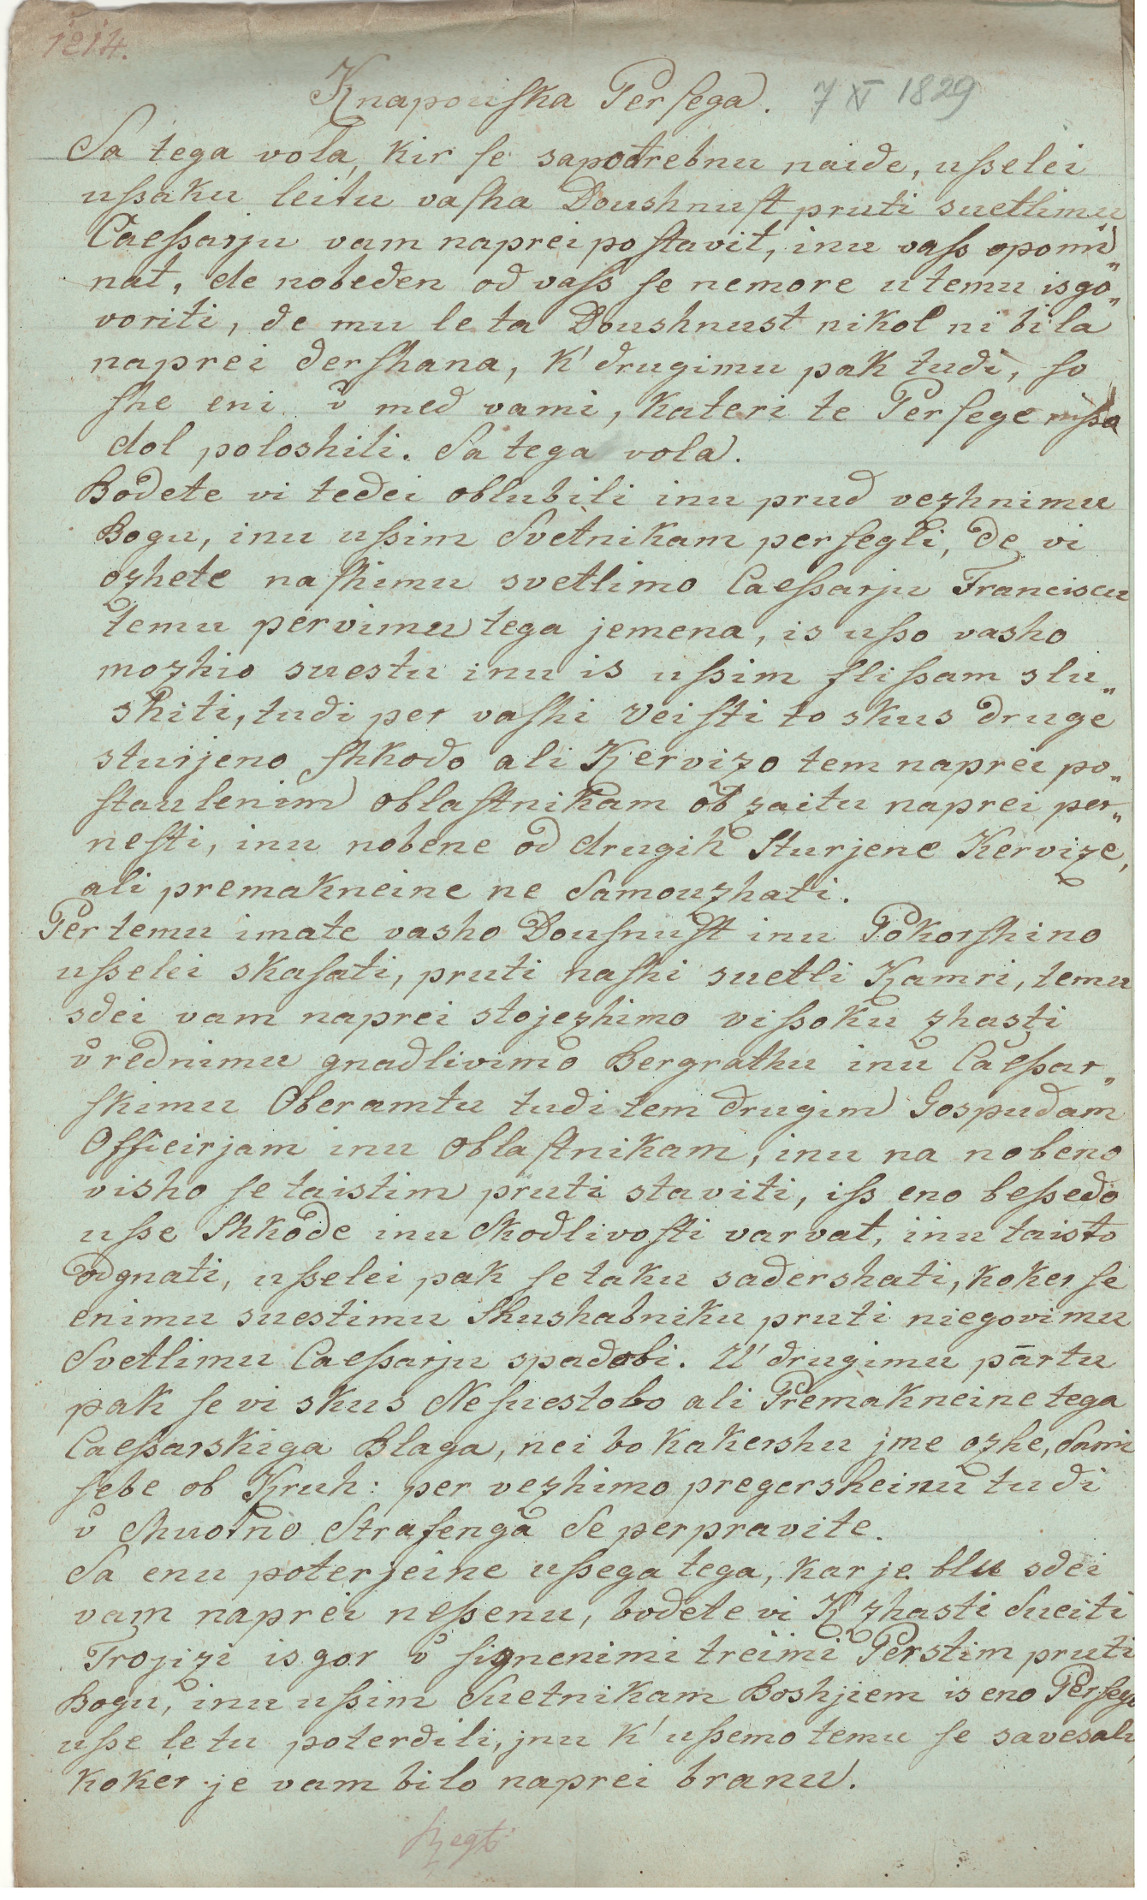 1214.
Knapouſka Perſega. 7 XI 1829
Sa tega vola, kir ſe sapotrebnu naide, uſselei
uſsaku leitu vaſha Doushnuſt pruti suetlimu
Caeſsarju vam naprei poſtavit, inu vaſs opomi„
nat, de nobeden od vaſs ſe nemore utemu isgo„
voriti, de mu leta Doushnust nikol ni bila
naprei derſhana, k' drugimu pak tudi, ſo
ſhe eni v med vami, kateri te Perſege niſso
dol poloshili. Sa tega vola.
Bodete vi tedei oblubili inu prud vezhnimu
Bogu, inu uſsim Svetnikam perſegli, de vi
ozhete naſhimu svetlimo Caeſsarju Franciscu
temu pervimu tega jemena, is uſso vasho
mozhio suestu inu is uſsim fliſsam slu„
shiti, tudi per vaſhi veiſti to skus druge
sturjeno ſhkodo ali Kervizo tem naprei po„
ſtaulenim oblaſtnikam ob zaitu naprei per„
neſti, inu nobene od drugih Sturjene Kervize,
ali premakneine ne Samouzhati.
Per temu imate vasho Douſnuſt inu Pokorſhino
uſselei skaſati, pruti naſhi suetli Kamri, temu
sdei vam naprei stojezhimo viſsoku zhasti
vrednimu gnadlivimo Bergrathu inu Caeſsar„
ſkimu Oberamtu tudi tem drugim Gospudam
Officirjam inu oblaſtnikam, inu na nobeno
visho ſe taistim pruti staviti, iſs eno beſsedo
uſse Shkode inu Skodlivoſti varvat, inu taisto
odgnati, uſselei pak ſe taku sadershati, koker ſe
enimu suestimu Shushabniku pruti niegovimu
Svetlimu Caeſsarju spadobi. U' drugimu partu
pak ſe vi skus Neſuestobo ali Premakneine tega
Caeſsarskiga Blaga, nei bo kakershu jme ozhe, Sami
ſebe ob Kruh: per vezhimo pregersheinu tudi
v Shuotno Straſenga Se perpravite.
Sa enu poterjeine uſsega tega, kar je blu sdei
vam naprei neſsenu, bodete vi K' zhasti Sueiti
Trojizi is gor v ſignenimi treimi Perstim pruti
Bogu, inu uſsim Suetnikam Boshjiem is eno Perſego
uſse le tu poterdili, jnu k' uſsemo temu ſe savesali,
koker je vam bilo naprei branu.